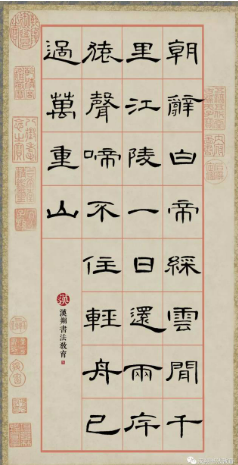 朝辭白帝綵雲間千
里江陵一日還兩岸
猿聲啼不住輕舟已
過萬重山
漢
漢翔書法教育